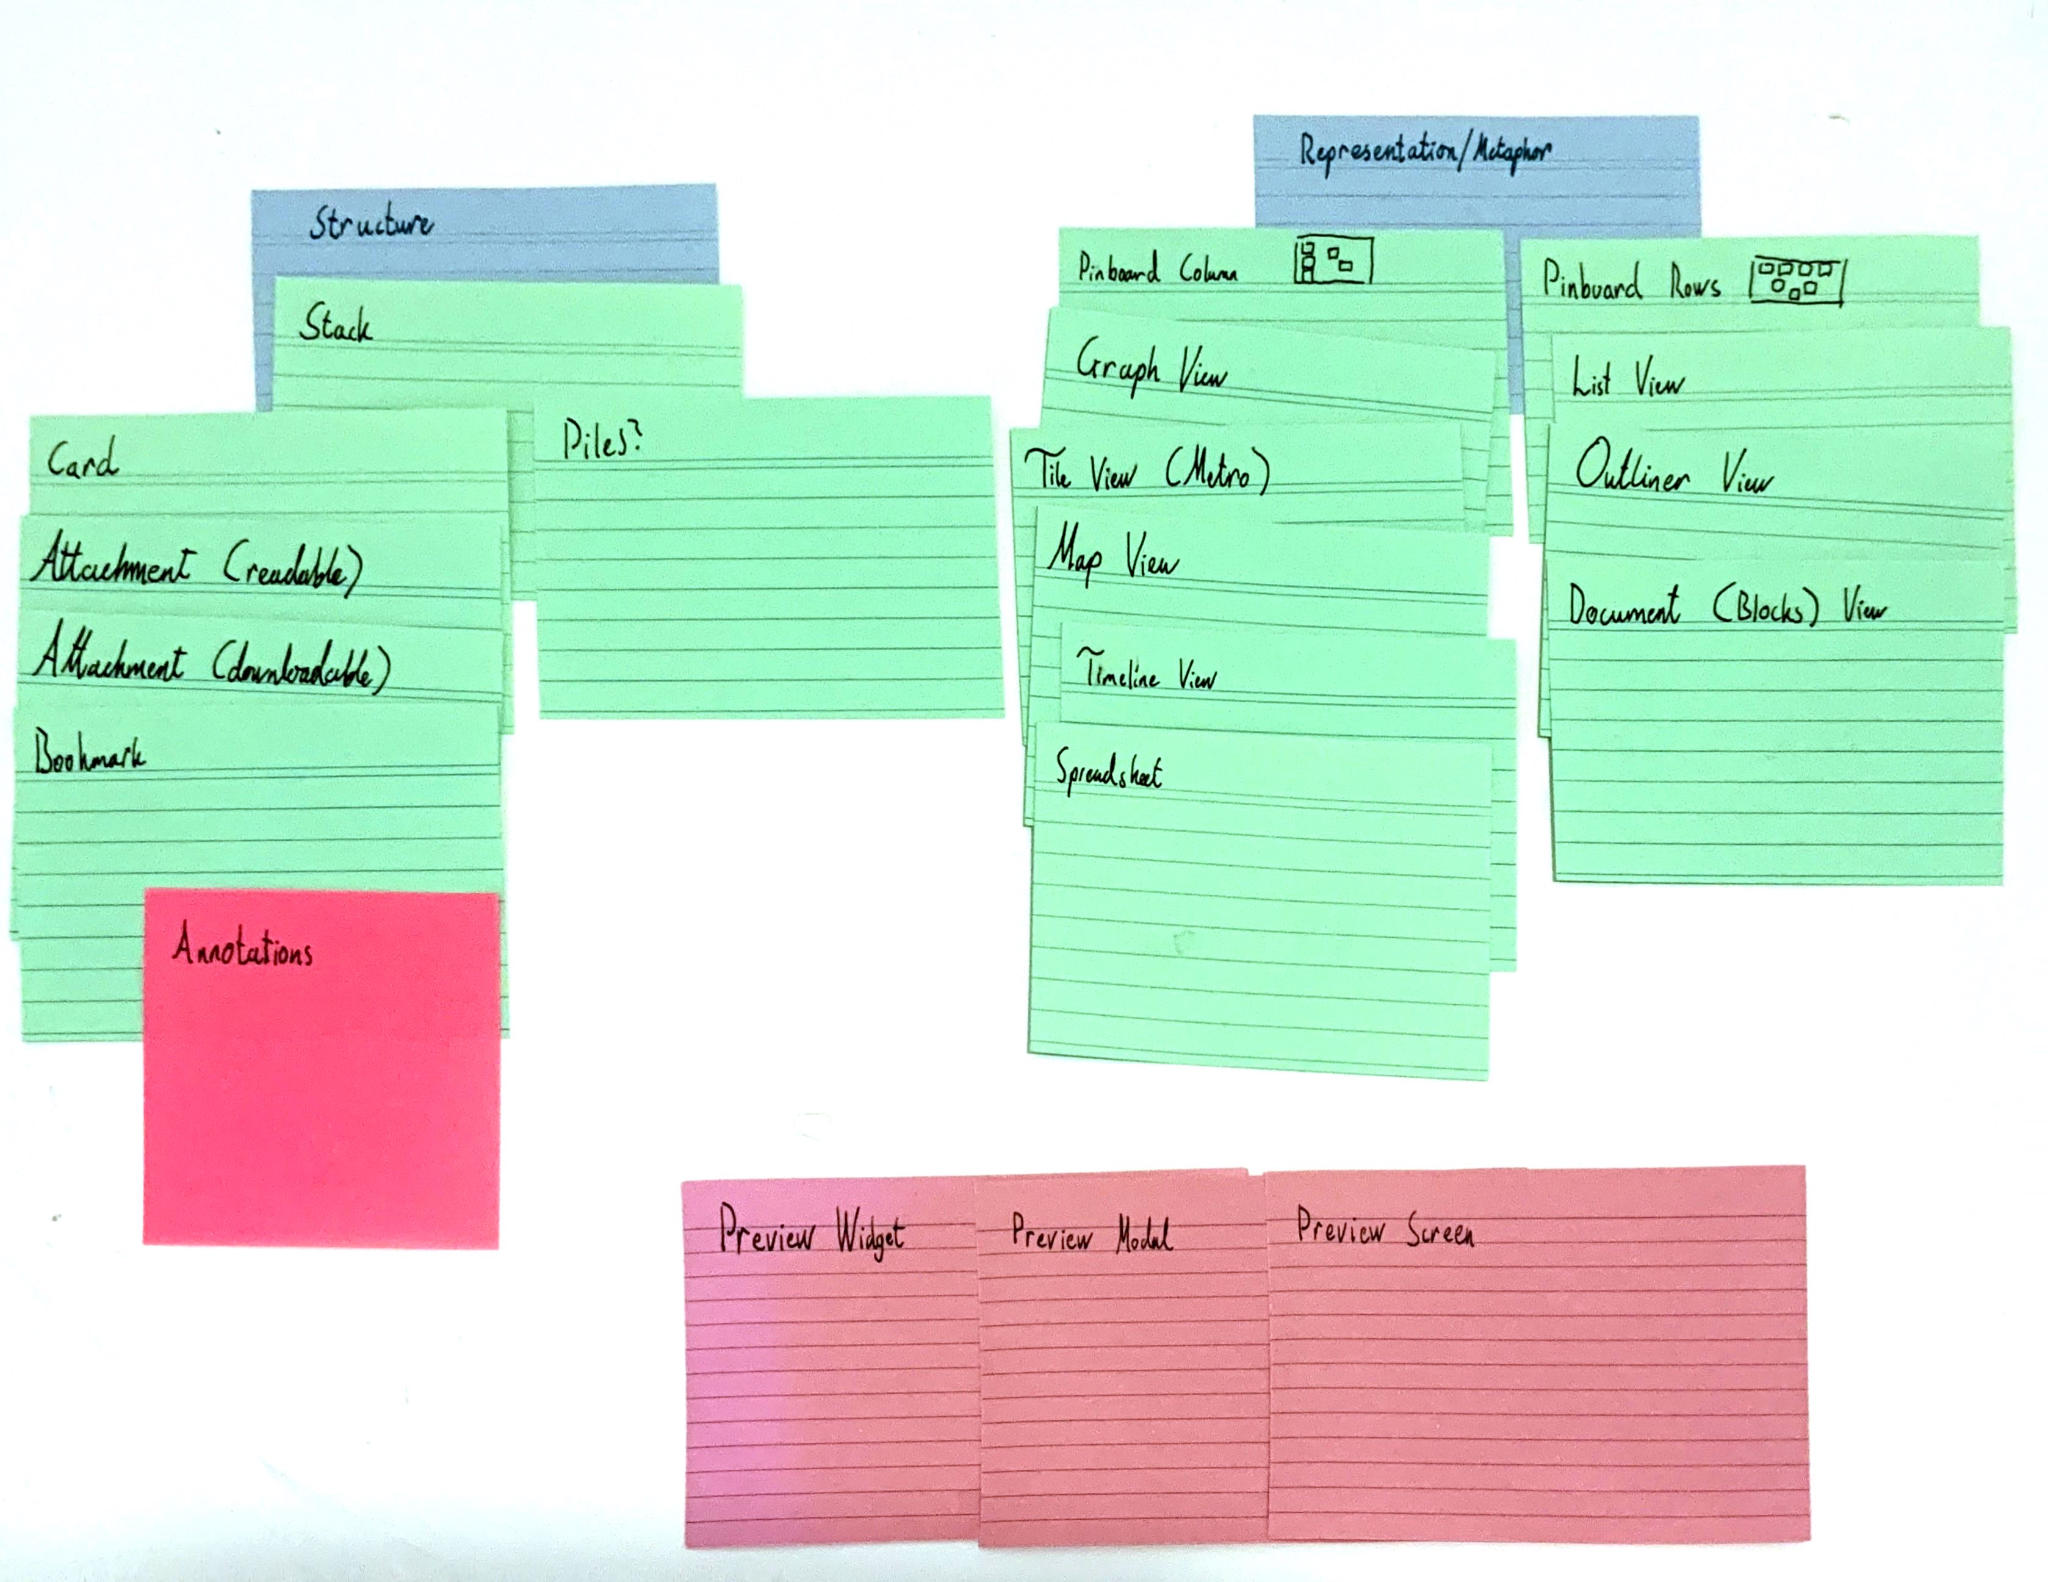 Structure
Stack
Card
Piles?
Attachment (readable)
Attachment (downloadable)
Bookmark
Annotations
Representation/Metaphor
Pinboard Column
Graph View
Tile View (Metro)
Map View
Timeline View
Spreadsheet
Pinboard Rows
List View
Outliner View
Document (Blocks) View
Preview Widget
Preview Modal
Preview Screen